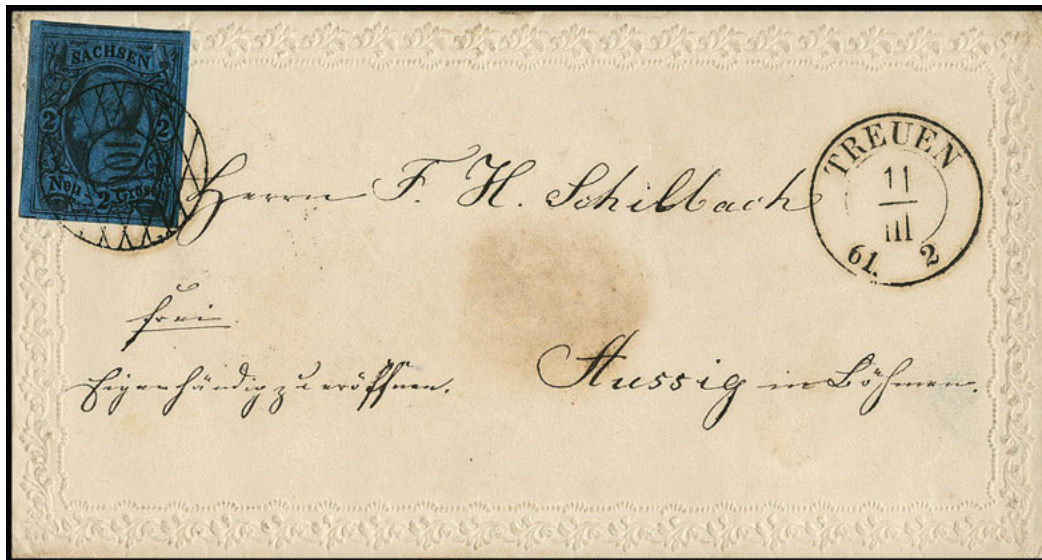 SACHSEN
2 2
Neu-2-Grosch
Herrn F. H. Schilbach
TREUEN
11
III
61. 2
frei
Eigenhändig zu eröffnen.
Aussig in Böhmen.